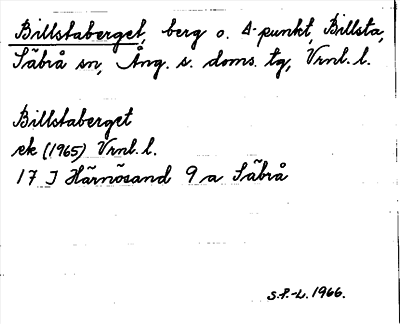 Billstaberget, berg o. Δ-punkt, Billsta,
Säbrå sn, Ång. s. doms. tg, Vrnl. l.
Billstaberget
ek (1965) Vrnl. l.
17 J Härnösand 9 a Säbrå
S.P.-L. 1966.